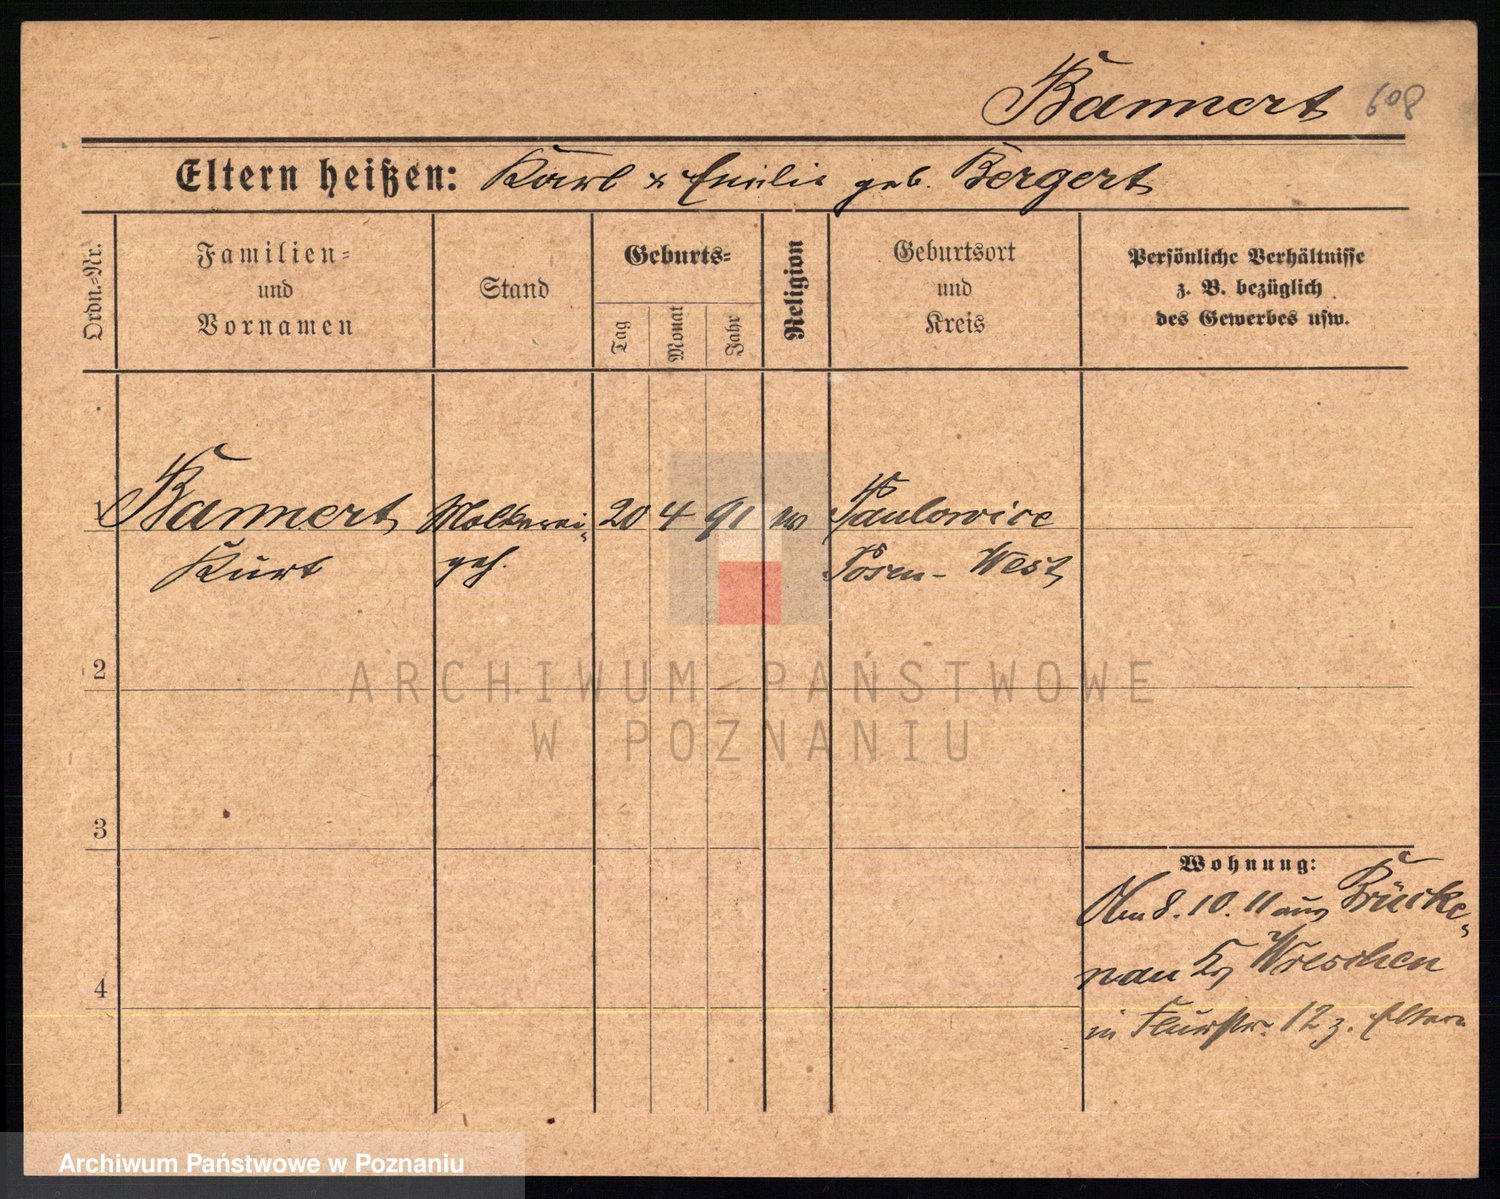 Bannert 608
Eltern heißen: Karl & Emilie geb. Bergert
Ordn.-Nr.
Familien-
und
Vornamen
Stand
Geburts-
Tag
Monat
Jahr
Religion
Geburtsort
und
Kreis
Persönliche Verhältnisse
z. B. bezüglich
des Gewerbes usw.
1 Bannert Molkerei- 20 4 91 ev Paulowice
Kurt geh. Posen - West
2
3
4
Wohnung:
Am 8. 10. 11 aus Brücke-
nau Kr Wreschen
in Flurstr. 12 z. Eltern
ARCHIWUM PAŃSTWOWE
W POZNANIU
Archiwum Państwowe w Poznaniu